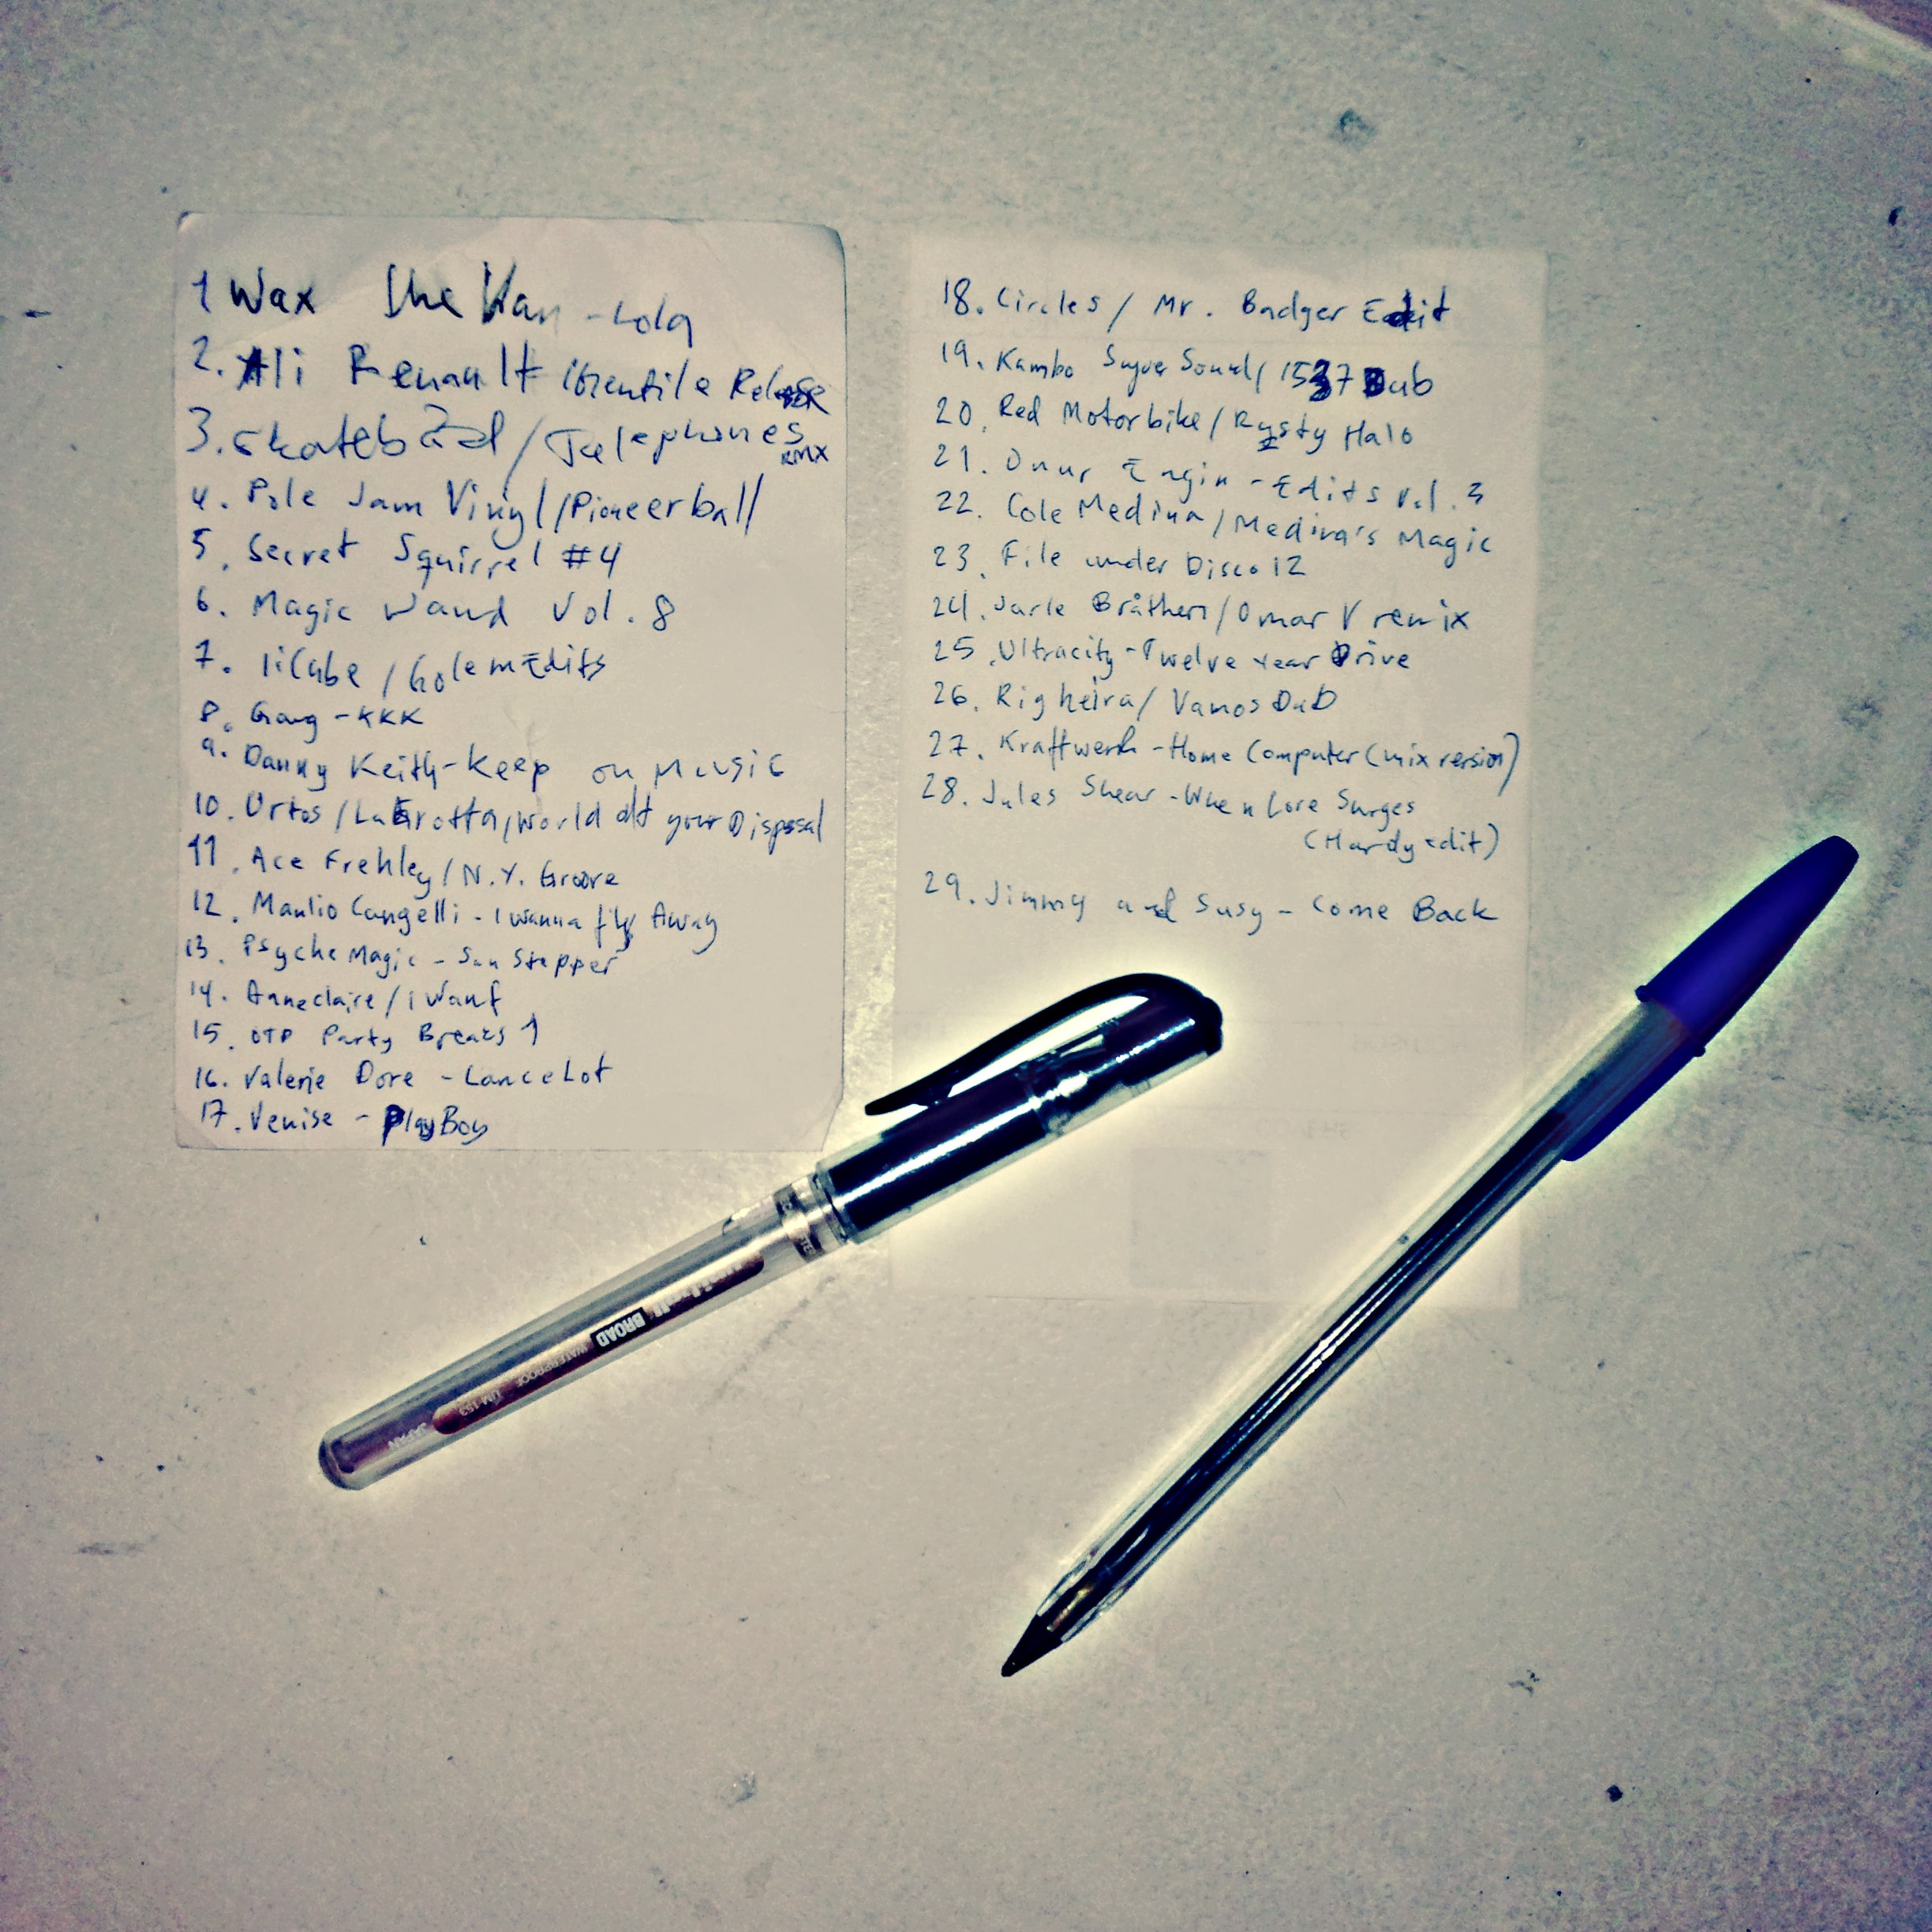 1 Wax the Van - Lola
2. Ali Renault / Gentile Release
3. Skatebård / Telephones
RMX
4. Pole Jam Vinyl / Pioneerball
5. Secret Squirrel #4
6. Magic Wand Vol. 8
7. I:Cube / Golem Edits
8. Gang - KKK
9. Danny Keith - Keep on Music
10. Urtos / La Grotta, World at your Disposal
11. Ace Frehley / N.Y. Groove
12. Manlio Cangelli - I wanna fly Away
13. Psyche Magic - Sun Stepper
14. Anneclaire / I Want
15. OTP Party Breaks 1
16. Valerie Dore - Lancelot
17. Venise - PlayBoy
18. Circles / Mr. Badger Edit
19. Kambo Super Sound / 1537 Dub
20. Red Motorbike / Rusty Halo
21. Onur Engin - Edits vol. 3
22. Cole Medina / Medina's Magic
23. File under Disco 12
24. Jarle Bråthen / Omar V remix
25. Ultracity - Twelve Year Drive
26. Righeira / Vamos Dub
27. Kraftwerk - Home Computer (mix version)
28. Jules Shear - When Love Surges
(Hardy edit)
29. Jimmy and Susy - Come Back
uni-ball
BROAD
WATERPROOF
UM-153
JAPAN